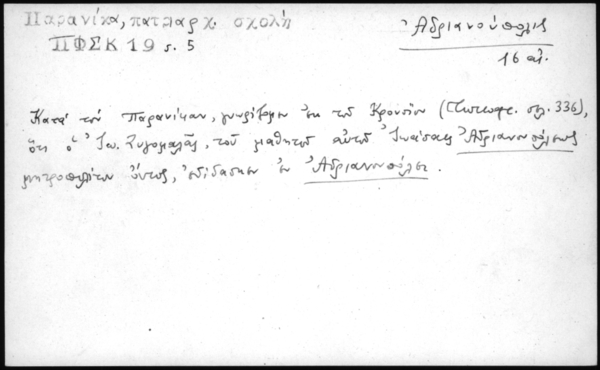 Παρανίκα, πατριαρχ. σχολή
ΠΦΣΚ 19 s. 5
Ἀδριανούπολις
16 αἰ.
Κατὰ τὸν Παρανίκαν, γνωρίζομεν ἐκ τοῦ Κρουσίου (σελ. 336),
ὅτι ὁ Ἰω. Ζυγομαλᾶς, τοῦ μαθητοῦ αὐτοῦ Ἰωάσαφ Ἀδριανουπόλεως
μητροπολίτου ὄντος, ἐδίδασκεν ἐν Ἀδριανουπόλει.